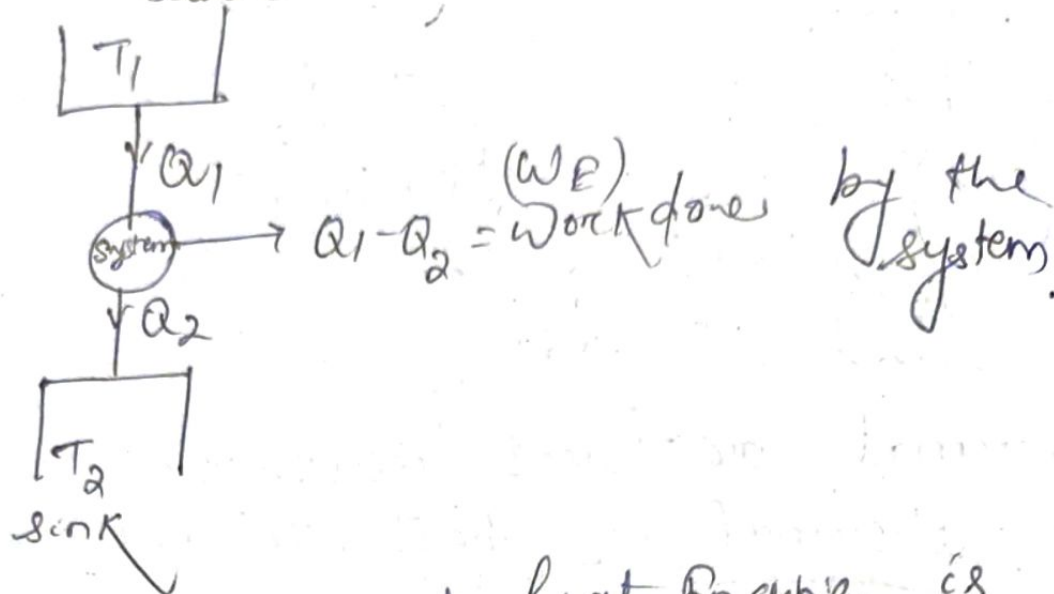 T1
Q1
(WE)
System → Q1-Q2 = Work done by the system.
Q2
T2
sink
is